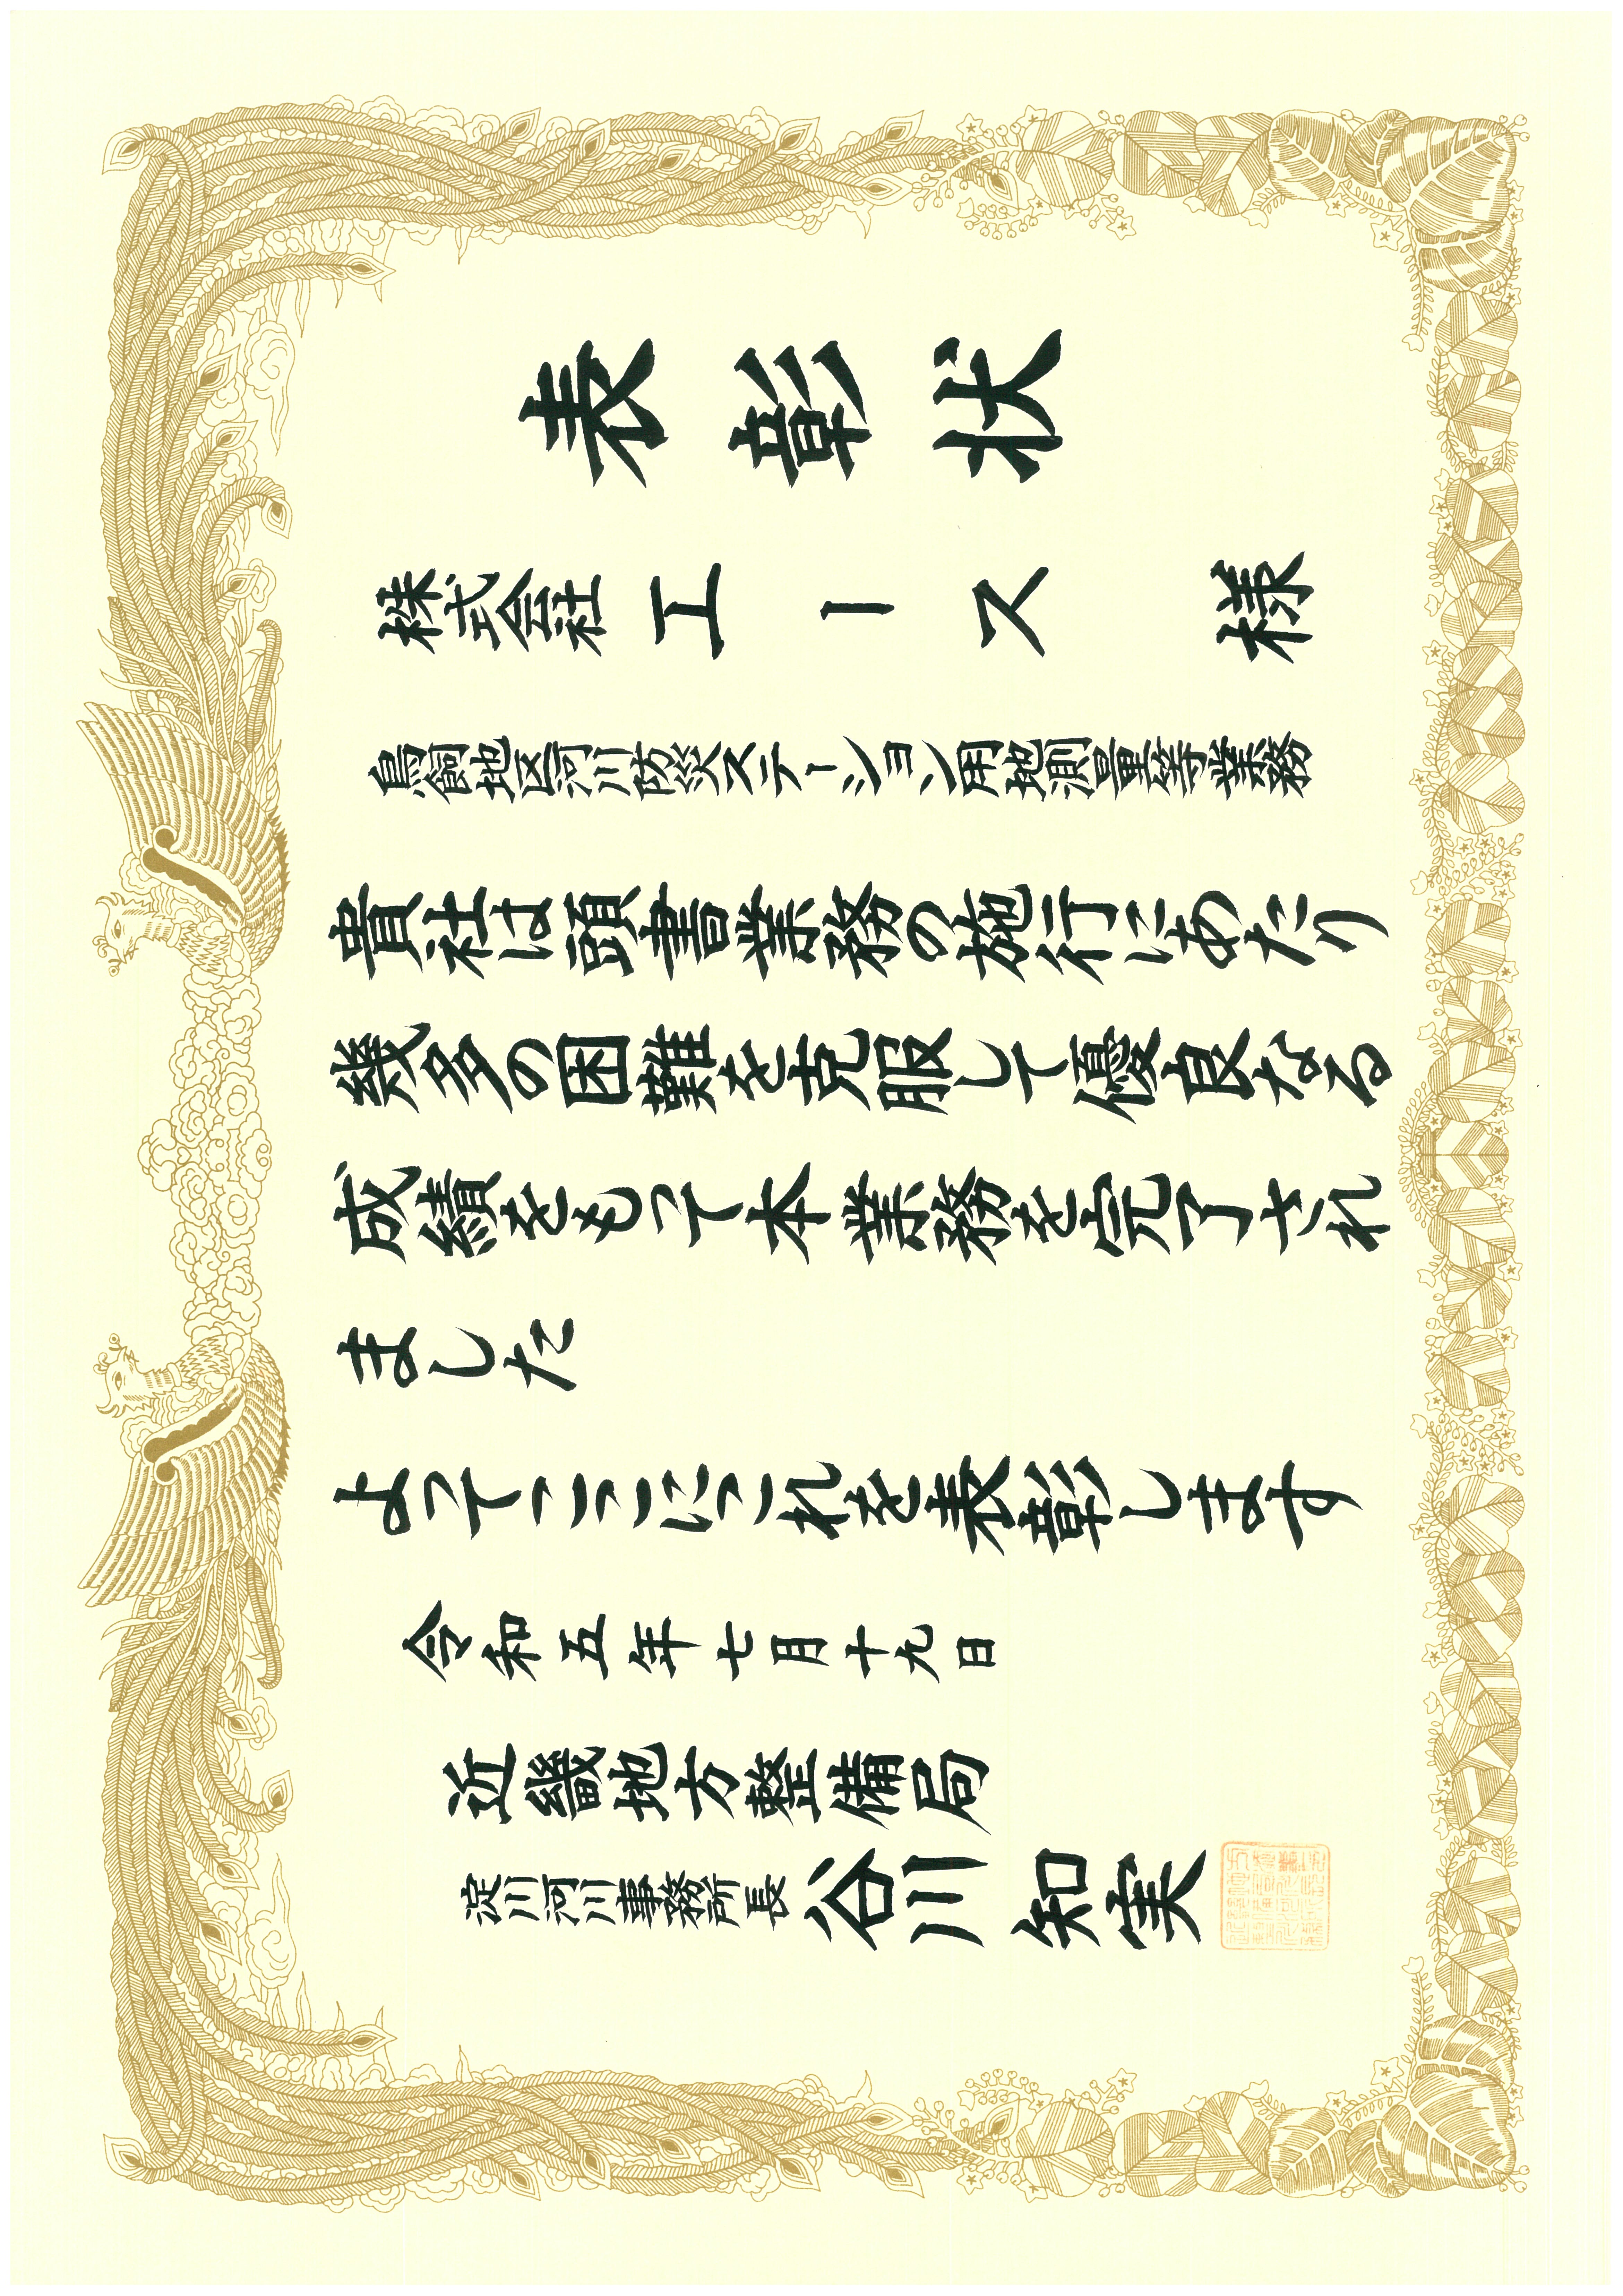 表彰状
株式会社エース 様
鳥飼地区河川防災ステーション用地測量等業務
貴社は頭書業務の施行にあたり
幾多の困難を克服して優良なる
成績をもって本業務を完了され
ました
よってここにこれを表彰します
令和五年七月十九日
近畿地方整備局
淀川河川事務所長 谷川知実